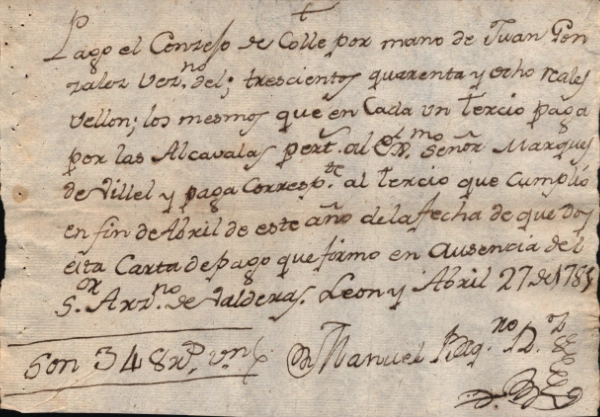 Pago el Conzejo de Colle por mano de Juan Gon
zalez vez.no del; trescientos quarenta y ocho reales
vellon; los mesmos que en Cada un tercio paga
por las Alcavalas pert. al Ex.mo señor Marques
de Villel y paga Corresp.te al tercio que cumplio
en fin de Abril de este año de la fecha de que doy
esta Carta de pago que firmo en ausencia del
S.or Arz.no de Valderas. Leon y Abril 27 de 1785
Son 348 r.s v.n
Manuel